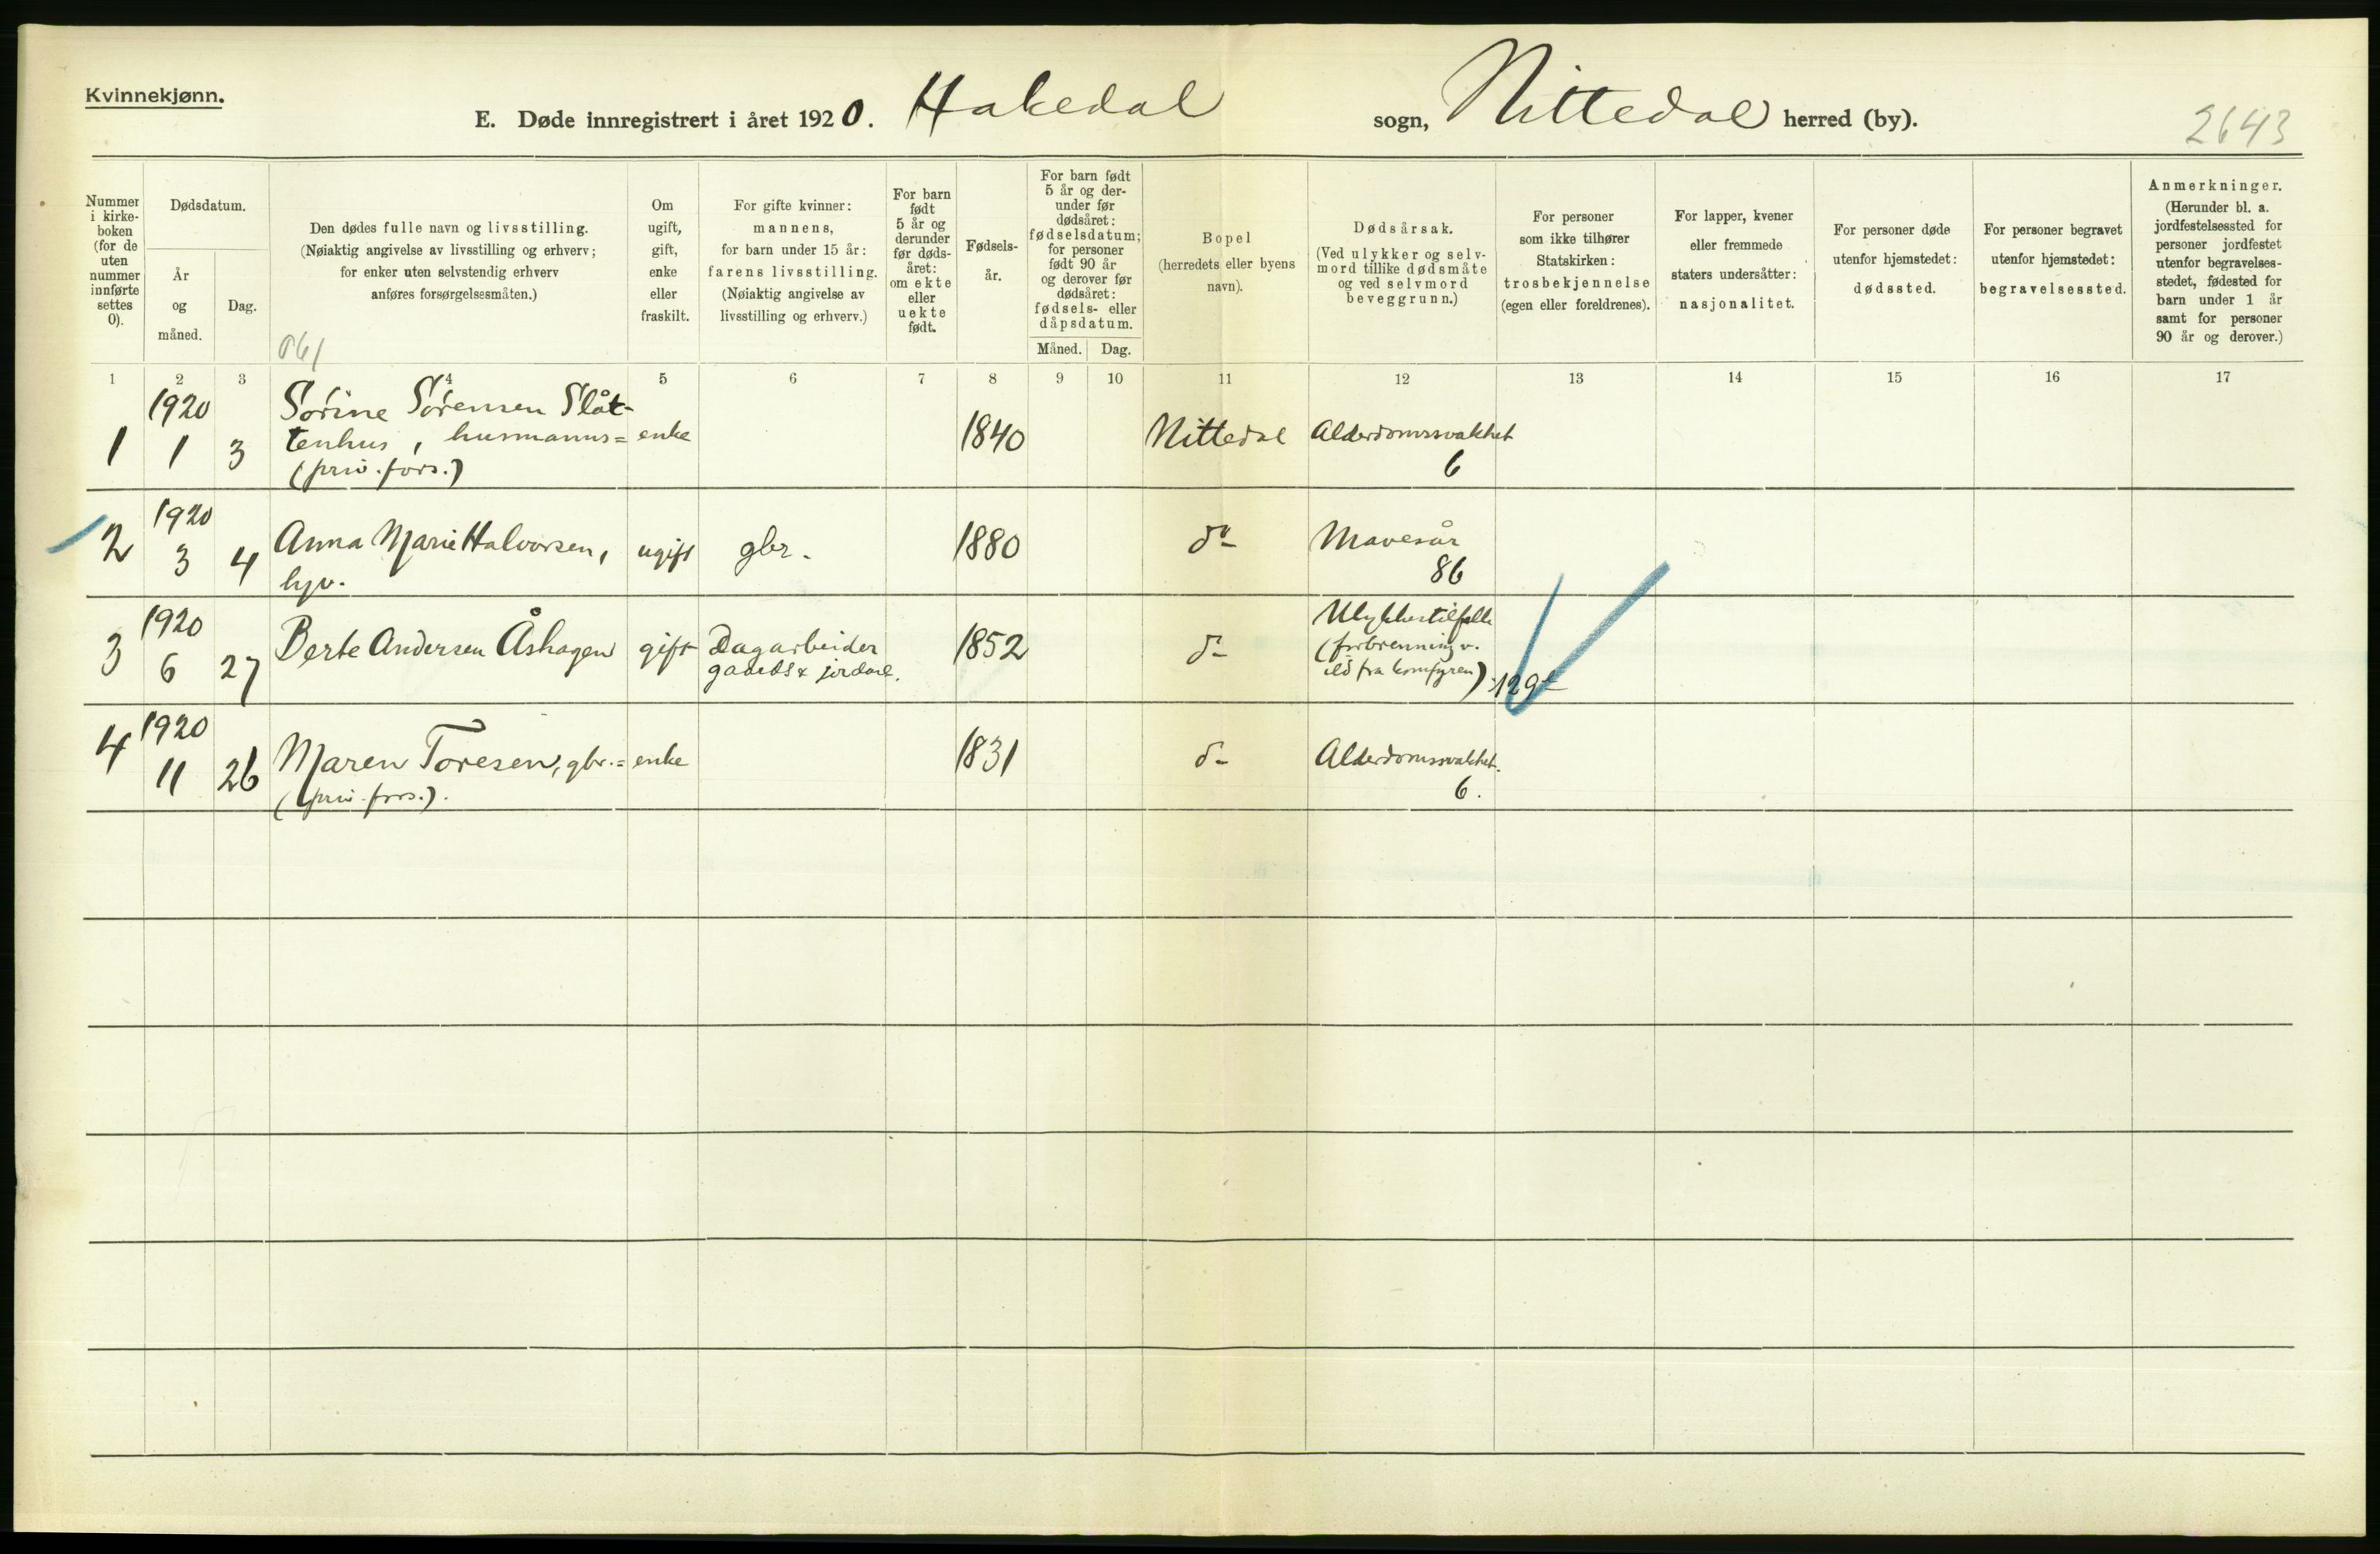 Kvinnekjønn.
E. Døde innregistrert i året 1920. Hakedal sogn, Nittedal herred (by).
2643
Nummer i kirke-boken (for de uten nummer innførte settes 0).
Dødsdatum.
År og måned.
Dag.
Den dødes fulle navn og livsstilling.
(Nøiaktig angivelse av livsstilling og erhverv;
for enker uten selvstendig erhverv
anføres forsørgelsesmåten.)
061
Om
ugift,
gift,
enke
eller
fraskilt.
For gifte kvinner:
mannens,
for barn under 15 år:
farens livsstilling.
(Nøiaktig angivelse av
livsstilling og erhverv.)
For barn
født
5 år og
derunder
før døds-
året:
om ekte
eller
uekte
født.
Fødsels-
år.
For barn født
5 år og der-
under før
dødsåret:
fødselsdatum;
for personer
født 90 år
og derover før
dødsåret:
fødsels- eller
dåpsdatum.
Måned. Dag.
Bopel
(herredets eller byens
navn).
Dødsårsak.
(Ved ulykker og selv-
mord tillike dødsmåte
og ved selvmord
beveggrunn.)
For personer
som ikke tilhører
Statskirken:
trosbekjennelse
(egen eller foreldrenes).
For lapper, kvener
eller fremmede
staters undersåtter:
nasjonalitet.
For personer døde
utenfor hjemstedet:
dødssted.
For personer begravet
utenfor hjemstedet:
begravelsessted.
Anmerkninger.
(Herunder bl. a.
jordfestelsessted for
personer jordfestet
utenfor begravelses-
stedet, fødested for
barn under 1 år
samt for personer
90 år og derover.)
1 2 3 4 5 6 7 8 9 10 11 12 13 14 15 16 17
1920 Sørine Sørensen Slåt-
1 1 3 tenhus, husmanns= enke 1840 Nittedal Alderdomssvakhet
(priv. fors.) 6
1920
2 3 4 Anna Marie Halvorsen, ugift gbr. 1880 do Mavesår
hjv. 86
1920 Ulykkestilfelle
3 6 27 Berte Andersen Åshagen gift Dagarbeider 1852 d- (forbrenning v.
gaards & jordarb. ild fra komfyren) 129
1920
4 11 26 Maren Toresen, gbr.= enke 1831 d- Alderdomssvakhet.
(priv. fors.). 6.